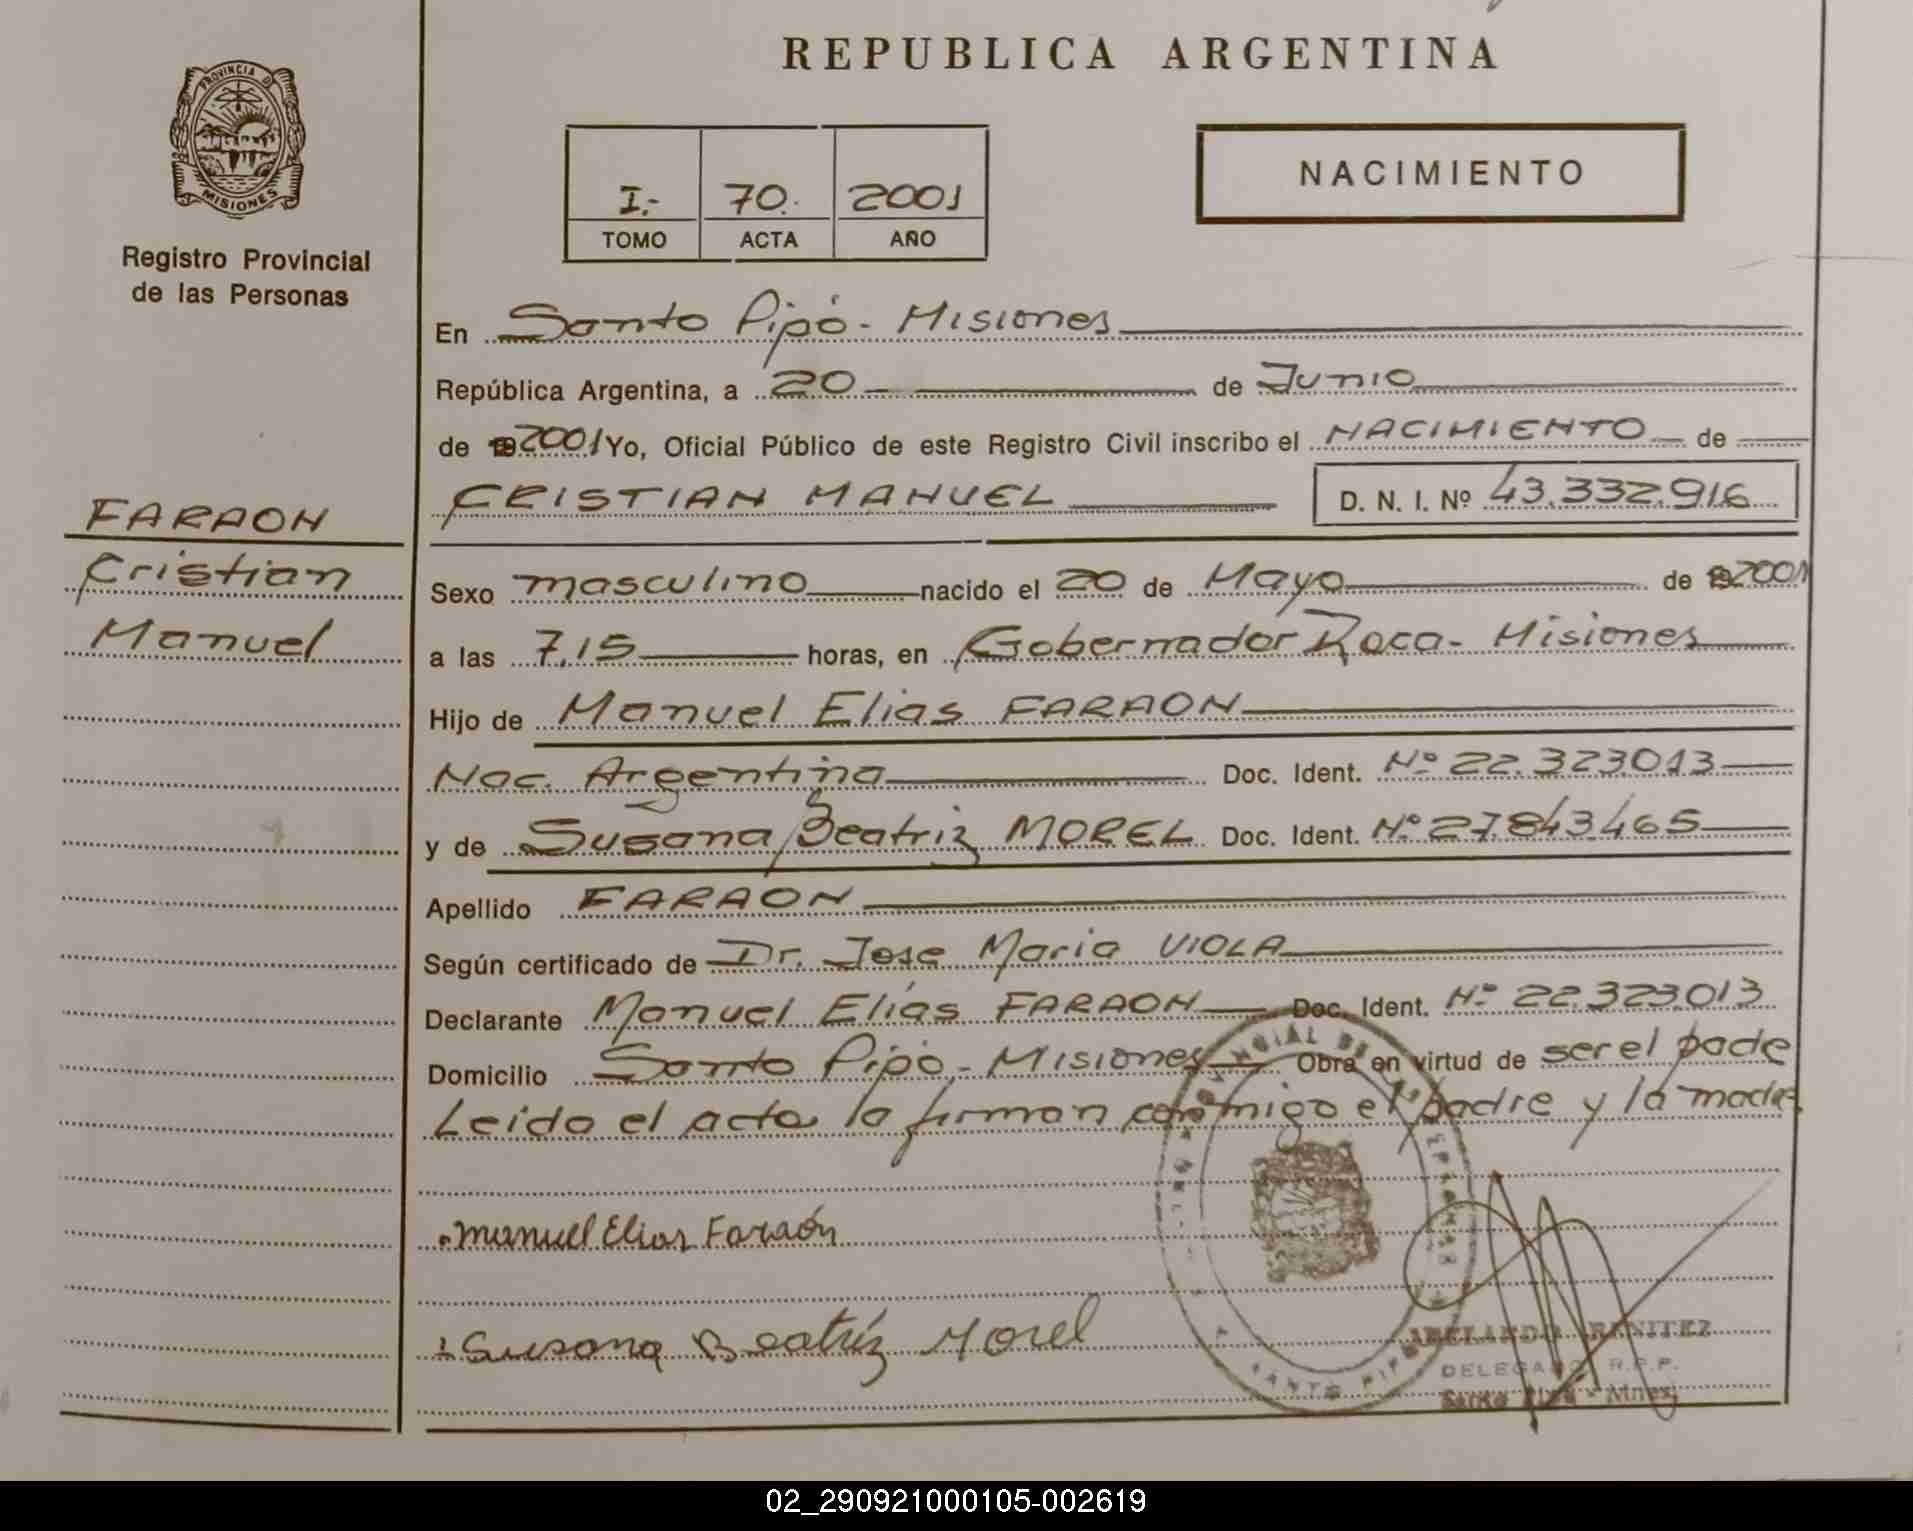 REPUBLICA ARGENTINA
PROVINCIA D
MISIONES
Registro Provincial
de las Personas
I.- 70. 2001
TOMO ACTA AÑO
NACIMIENTO
En Santo Pipó - Misiones
República Argentina, a 20 de Junio
de 2001 Yo, Oficial Público de este Registro Civil inscribo el NACIMIENTO de
CRISTIAN MANUEL D. N. I. Nº 43.332.916
FARAON
Cristian
Manuel
Sexo masculino nacido el 20 de Mayo de 2001
a las 7,15 horas, en Gobernador Roca - Misiones
Hijo de Manuel Elias FARAON
Nac. Argentina Doc. Ident. Nº 22.323.013
y de Susana Beatriz MOREL Doc. Ident. Nº 27.843.465
Apellido FARAON
Según certificado de Dr. Jose Maria VIOLA
Declarante Manuel Elías FARAON Doc. Ident. Nº 22.323.013
Domicilio Santo Pipó - Misiones Obra en virtud de ser el pade
Leido el acta la firman conmigo el padre y la madre
Manuel Elias Faraón
Susana Beatríz Morel
SANTO PIPO
ABELARDO BENITEZ
DELEGADO R.P.P.
Santo Pipó - Mnes.
02_290921000105-002619